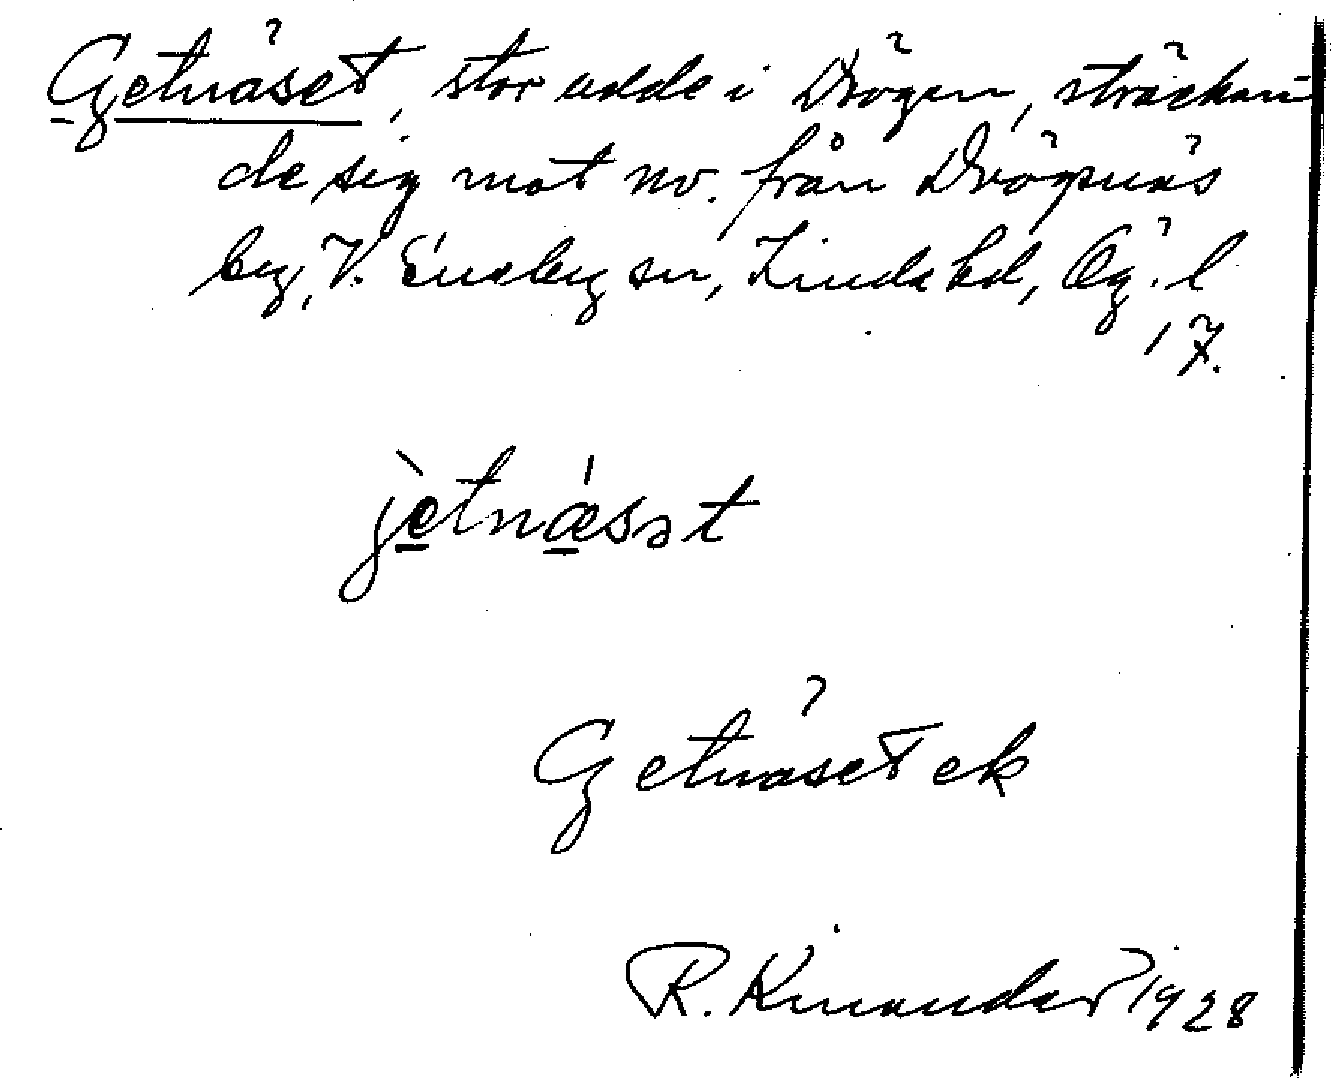 Getnäset, stor udde i Drögen, sträckan-
de sig mot nv. från Drögsnäs
by, V. Eneby sn, Kinda hd, Ög. l
17.
jètnǽsət
Getnäset ek
R. Kinander 1928